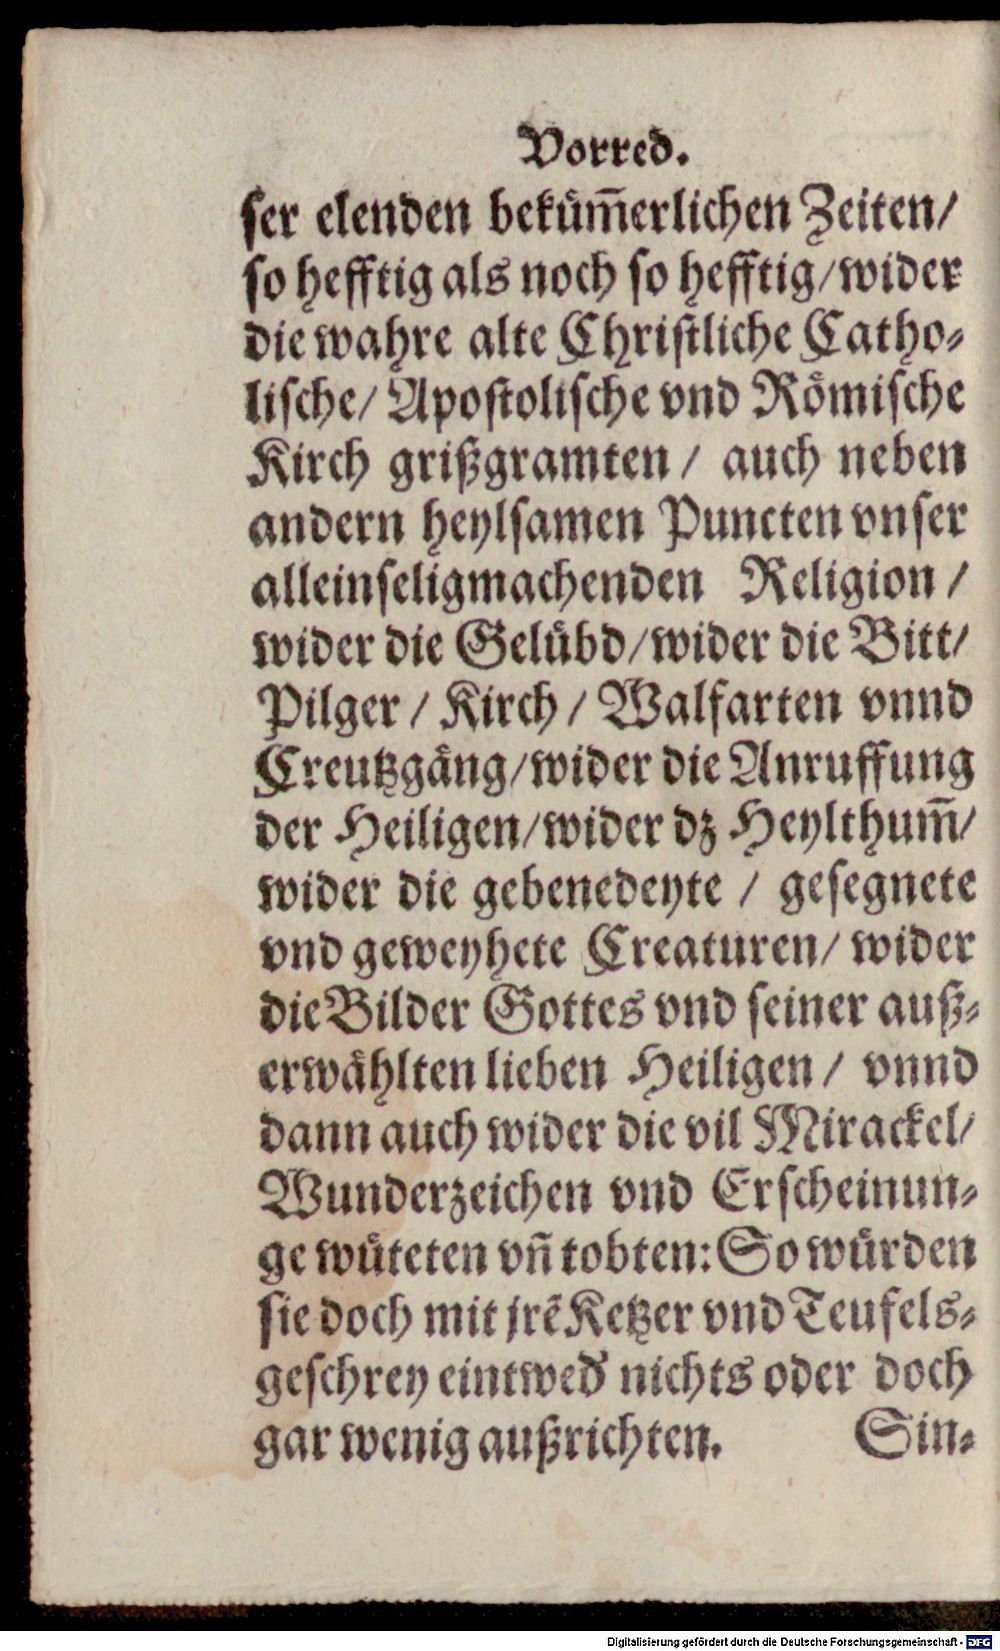 Vorred.
ſer elenden bekuͤm̃erlichen Zeiten/
ſo hefftig als noch ſo hefftig/wider
die wahre alte Chriſtliche Catho⸗
liſche/ Apoſtoliſche vnd Roͤmiſche
Kirch grißgramten / auch neben
andern heylſamen Puncten vnſer
alleinſeligmachenden Religion /
wider die Geluͤbd/wider die Bitt/
Pilger / Kirch / Walfarten vnnd
Creutzgaͤng/wider die Anruffung
der Heiligen/wider dz Heylthum̃/
wider die gebenedeyte / geſegnete
vnd geweyhete Creaturen/ wider
die Bilder Gottes vnd ſeiner auß⸗
erwaͤhlten lieben Heiligen / vnnd
dann auch wider die vil Mirackel/
Wunderzeichen vnd Erſcheinun⸗
ge wuͤteten vñ tobten: So wuͤrden
ſie doch mit jrẽ Ketzer vnd Teufels⸗
geſchrey eintwed' nichts oder doch
gar wenig außrichten. Sin⸗
Digitalisierung gefördert durch die Deutsche Forschungsgemeinschaft - DFG